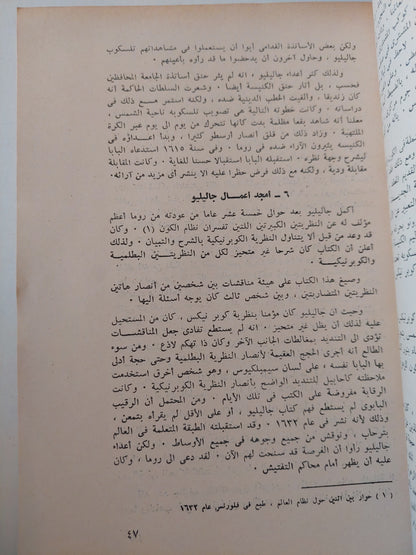 ولكن بعض الأساتذة القدامى أبوا أن يستعملوا فى مشاهداتهم تلسكوب
جاليليو ، وحاول آخرون أن يدحضوا ما قد رأوه بأعينهم .
ولذلك كثر أعداء جاليليو ، انه لم يثر حنق أساتذة الجامعة المحافظين
فحسب ، بل أثار حنق الكنيسة أيضا . وشعرت السلطات الحاكمة أنه
كان زنديقا ، وألقيت الخطب الدينية ضده ، ولكنه استمر مع ذلك فى
دراساته . وكانت خطوته التالية هى تصويب تلسكوبه ناحية الشمس ،
معلنا أنه شاهد بقعا مظلمة بدت كأنها تتحرك من يوم الى يوم عبر الكرة
الملتهبة . وزاد ذلك من قلق أنصار أرسطو كثيرا ، وبدأ أعداؤه فى
الكنيسة يثيرون الآراء ضده فى روما . وفى عام ١٦١٥ استدعاه البابا
ليشرح وجهة نظره . استقبله البابا استقبالا حسنا للغاية . وكانت المقابلة
مقابلة ودية ، ولكنه مع ذلك فرض حظرا عليه الا ينشر أى مزيد من آرائه .
٦ - أمجد أعمال جاليليو
أكمل جاليليو بعد حوالى خمسة عشر عاما من عودته من روما أعظم
مؤلف له عن النظريتين الكبيرتين اللتين تفسران نظام الكون (١) وكان
قد وعد من قبل ألا يتناول النظرية الكوبرنيكية بالشرح والتبيان . ولذلك
أعلن أن الكتاب كان شرحا غير متحيز لكل من النظريتين البطلمية
والكوبرنيكية .
وصيغ هذا الكتاب على هيئة مناقشات بين شخصين من أنصار هاتين
النظريتين المتضاربتين ، وبين شخص ثالث كان يوجه أسئلة اليها .
وحيث أن جاليليو كان مؤمنا بنظرية كوبر نيكس ، كان من المستحيل
عليه لذلك أن يظل غير متحيز . انه لم يستطع تفادى جعل المناقشات
تؤدى الى التنديد بمغالطات الجانب الآخر وكان ذا تهكم لاذع . ومن سوء
الطالع أنه أجرى الحجج العقيمة لأنصار النظرية البطلمية وحتى حجة أدلى
بها البابا نفسه ، على لسان سيمبلكيوس ، وهو شخص أخرق استخدمت
ملاحظته كأحابيل للتنديد الواضح بأنصار النظرية الكوبرنيكية . وكانت
الرقابة مفروضة على الكتب فى تلك الأيام . ومن المحتمل أن الرقيب
البابوى لم يستطع فهم كتاب جاليليو ، أو على الأقل لم يقرأه بتمعن .
وذلك لأنه نشر فى عام ١٦٣٢ . وقد استقبلته الطبقة المتعلمة فى العالم
بترحاب ، ونوقش من جميع وجوهه فى جميع الأوساط . ولكن أعداء
جاليليو رأوا أن الفرصة قد سنحت لهم الآن . لقد دعى الى روما ، وكان
عليه أن يظهر أمام محاكم التفتيش .
( ١ ) حوار بين اثنين حول نظام العالم ، طبع فى فلورنس عام ١٦٣٢
٤٧